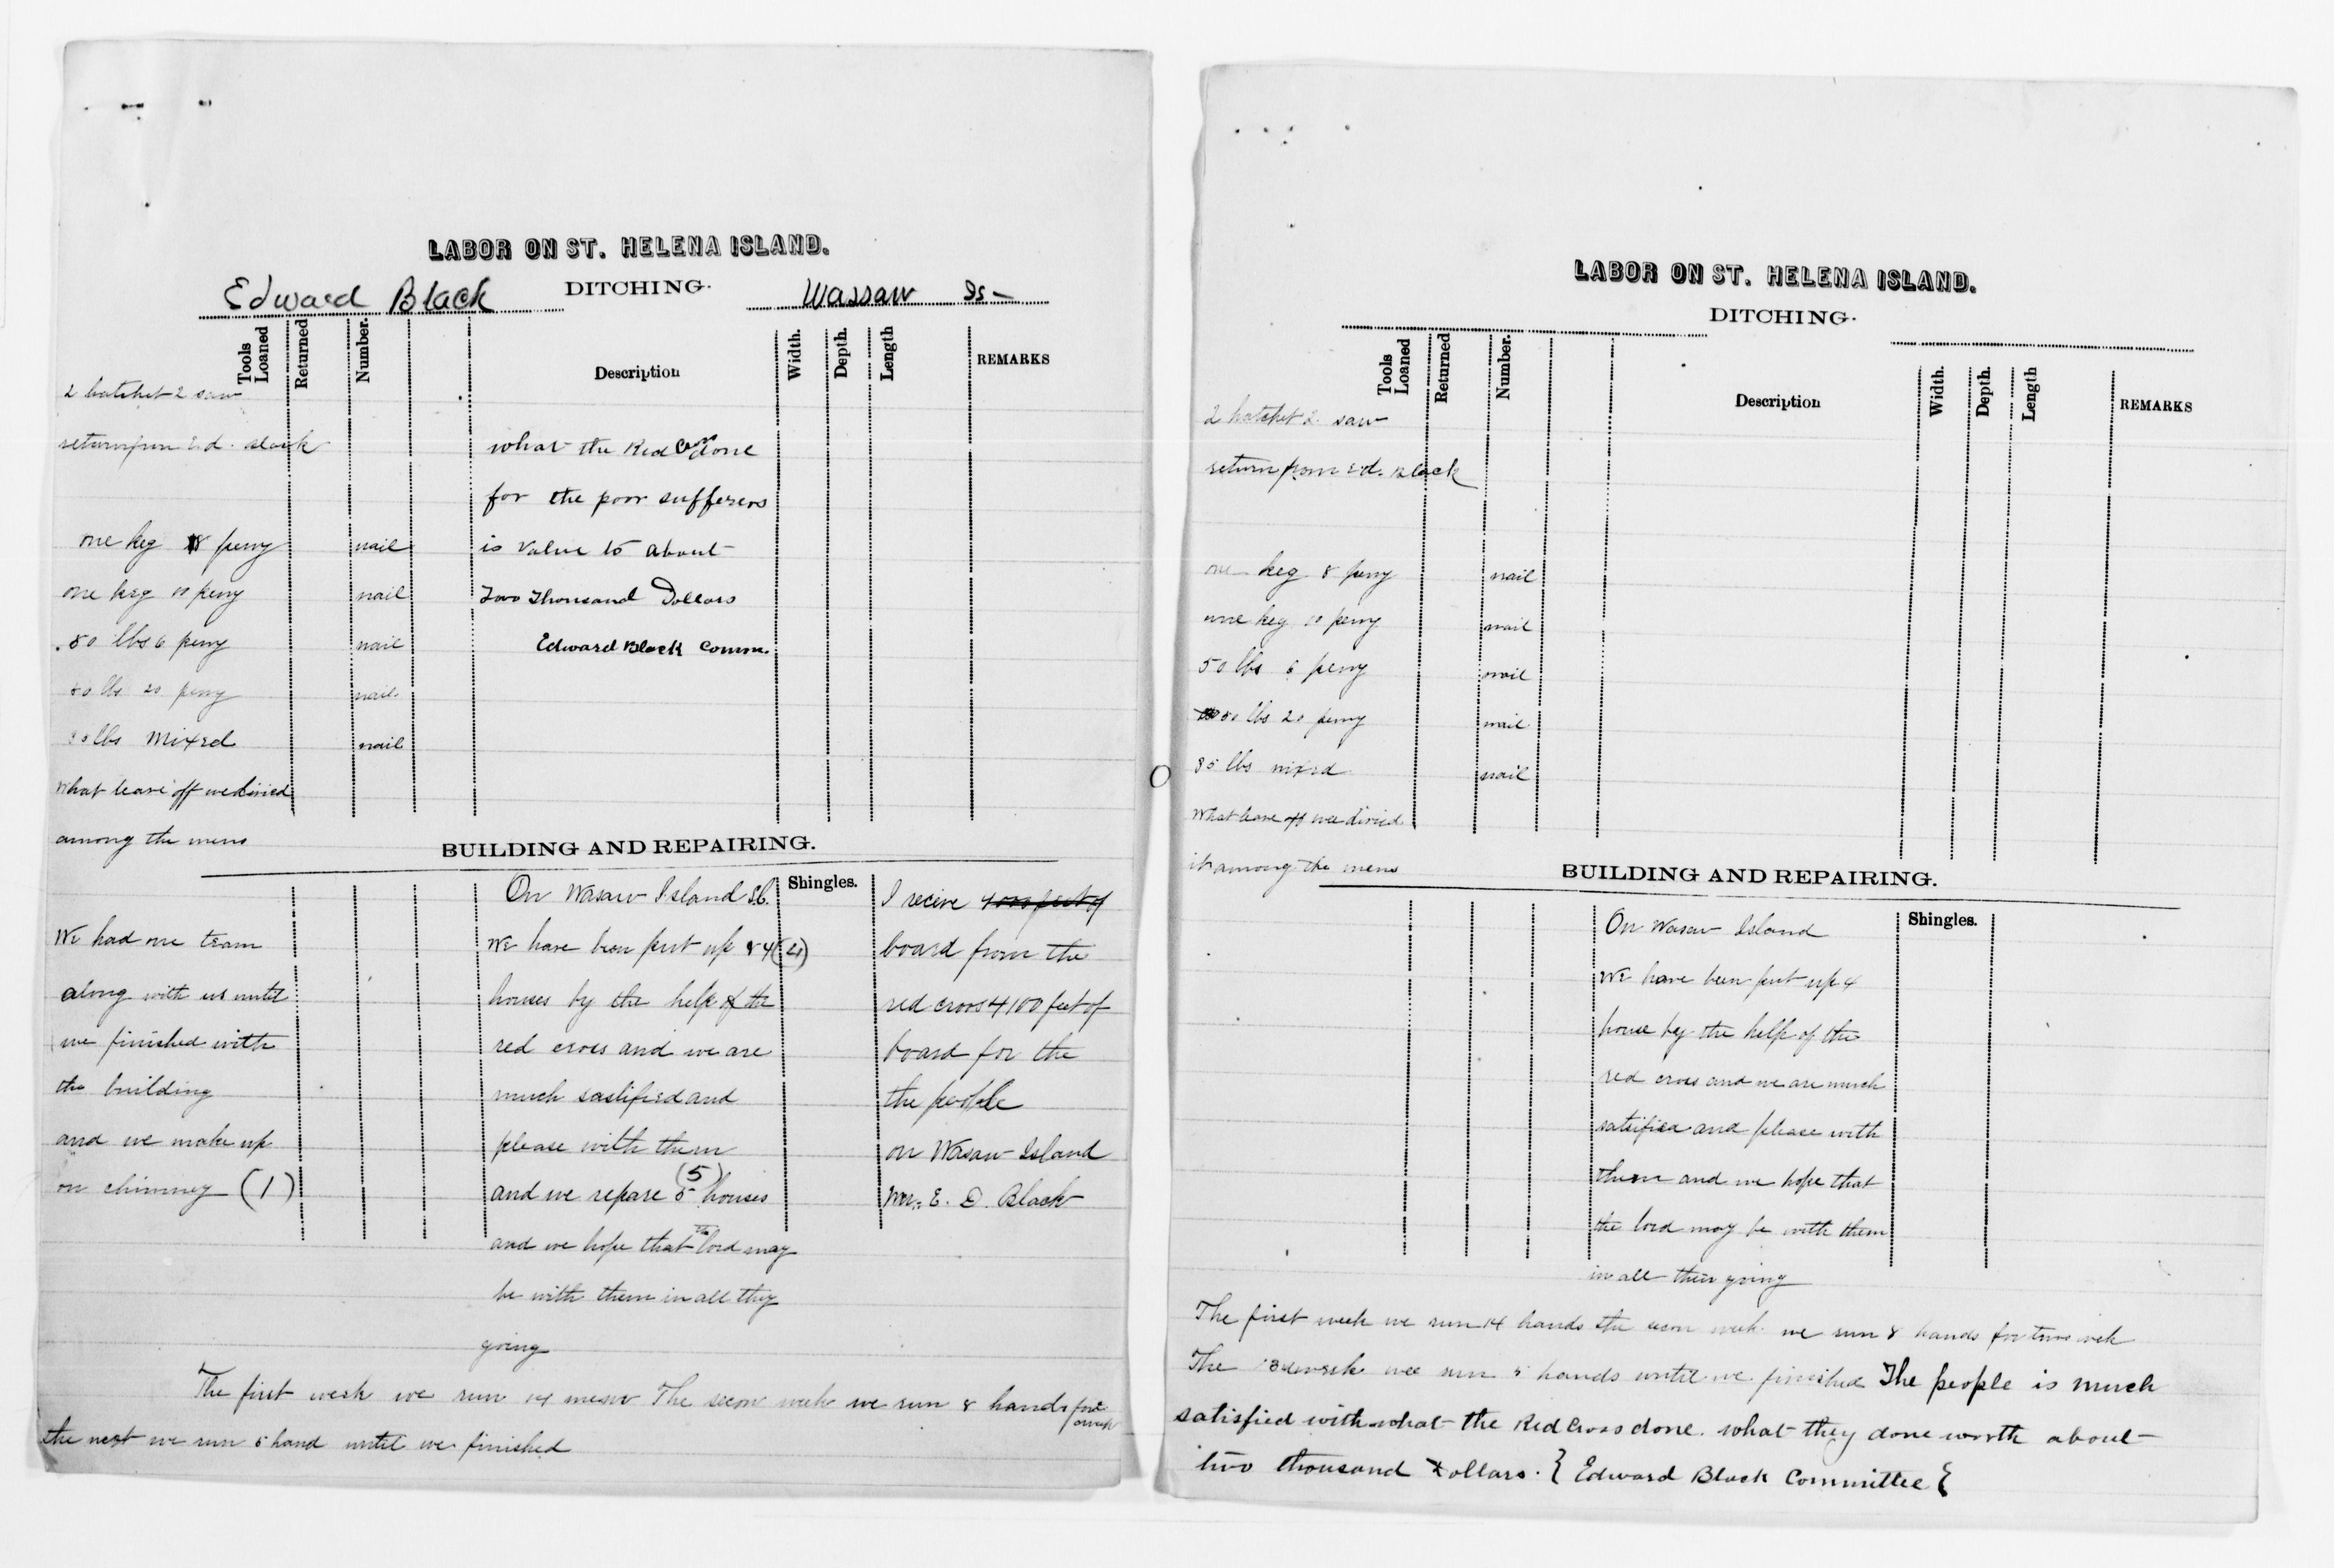 LABOR ON ST. HELENA ISLAND.
Edward Black DITCHING. Wassaw Is-
Tools Loaned Returned Number. Description Width. Depth. Length REMARKS
2 hatchet 2 saw
return from Ed. Black
what the Red Cross done
for the poor sufferers
one keg 8 penny nail is value to about
one keg 10 penny nail Two Thousand Dollars
50 lbs 6 penny nail Edward Black Comm.
50 lbs 20 penny nail
lbs Mixed nail
What leave off we divied
among the mens
BUILDING AND REPAIRING.
On Wasaw Island S.C. Shingles. I recive 4000 feet of
We had one team We have been put up 4 (4) board from the
along with us until houses by the help of the red cross 4100 feet of
we finished with red cross and we are board for the
the building much sastified and the people
and we make up please with them on Wasaw Island
on chimney (1) and we repare 5 (5) houses Mr. E. D. Black
and we hope that the lord may
be with them in all they
going
The first week we run 14 mens The secon week we run 8 hands for a week
the next we run 5 hand until we finished
LABOR ON ST. HELENA ISLAND.
DITCHING.
Tools Loaned Returned Number. Description Width. Depth. Length REMARKS
2 hatchet 2 saw
return from Ed. Black
one keg 8 penny nail
one keg 10 penny nail
50 lbs 6 penny nail
50 lbs 20 penny nail
85 lbs mixed nail
What leave off wee divied
it among the mens
BUILDING AND REPAIRING.
On Wasaw Island Shingles.
We have been put up 4
house by the help of the
red cross and we are much
satisfied and please with
them and we hope that
the lord may be with them
in all their going
The first week we run 14 hands the secon week we run 8 hands for two wek
The 3d week wee run 5 hands until we finished The people is much
satisfied with what the Red Cross done. what they done worth about
two thousand Dollars. { Edward Black Committee {